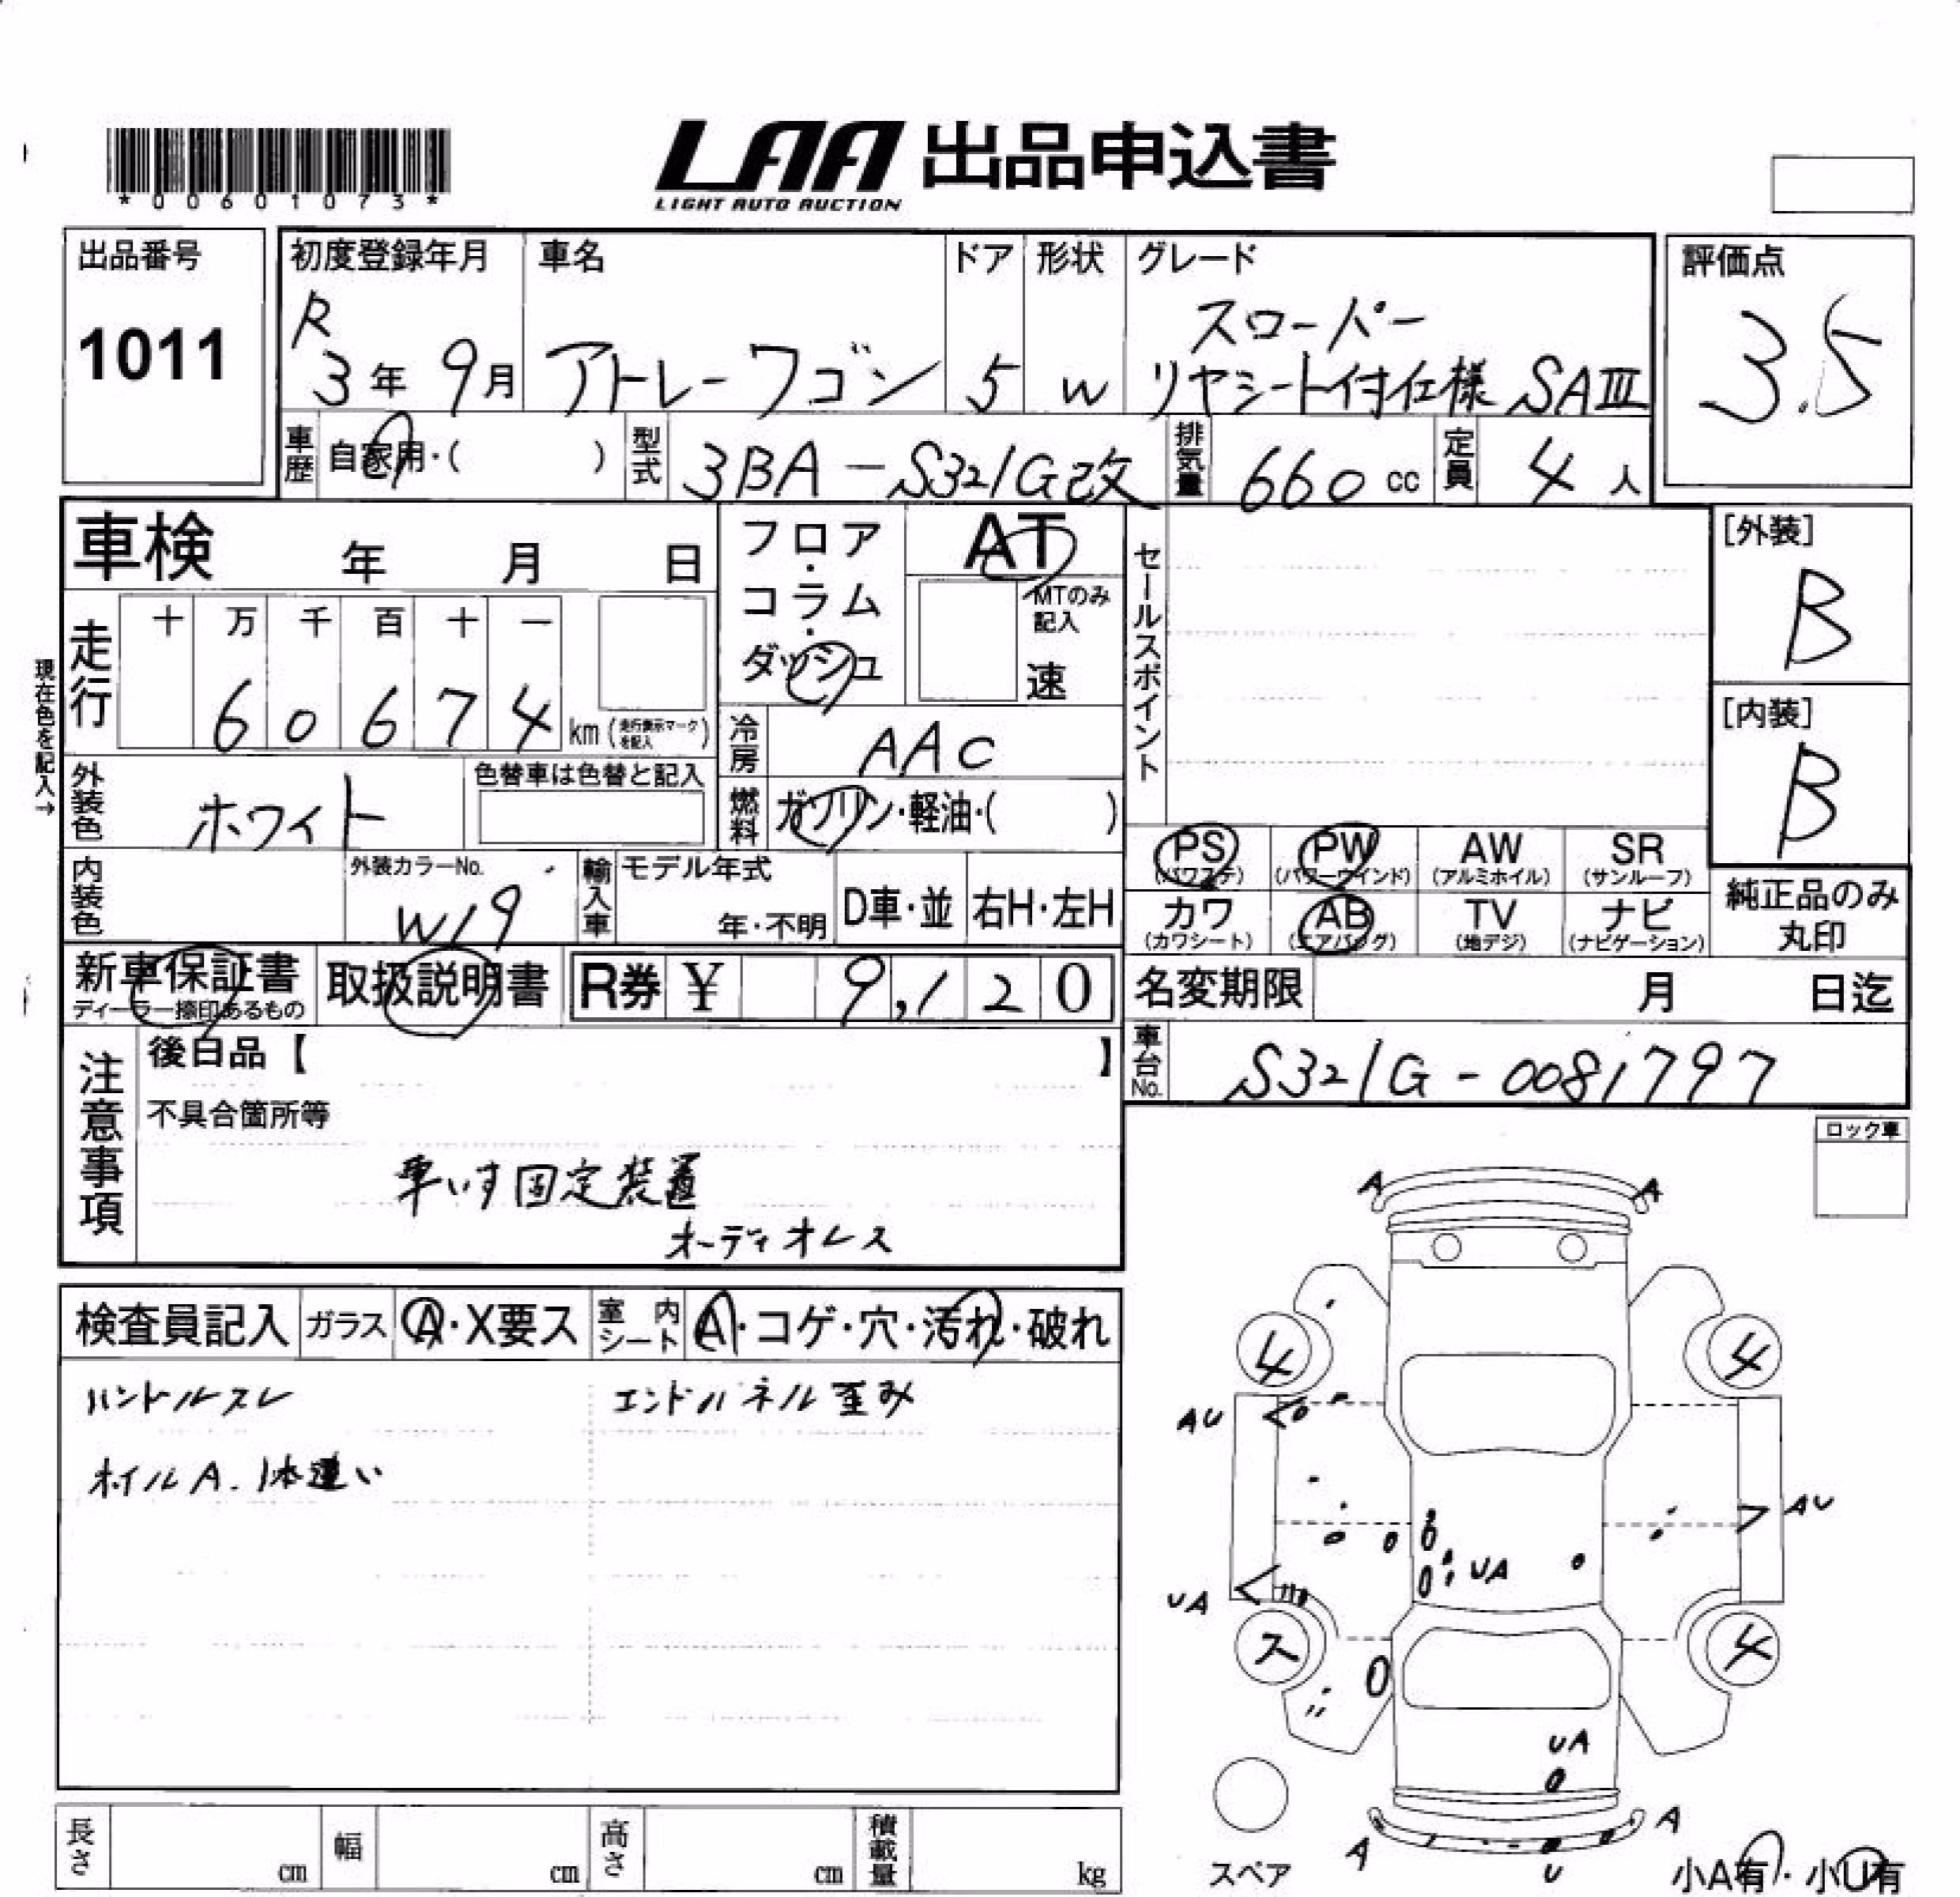 *00601073*
LAA 出品申込書
LIGHT AUTO AUCTION
出品番号
1011
初度登録年月
R
3年 9月
車名
アトレーワゴン
ドア
5
形状
W
グレード
スローパー
リヤシート付仕様 SAⅢ
評価点
3.5
車歴
自家用・( )
型式
3BA-S321G改
排気量
660 cc
定員
4人
車検 年 月 日
フロア・コラム・ダッシュ
AT
MTのみ記入
速
セールスポイント
[外装]
B
[内装]
B
現在色を記入→
走行
十 万 千 百 十 一
6 0 6 7 4 km
(走行表示マークを記入)
冷房
AAC
外装色
ホワイト
色替車は色替と記入
燃料
ガソリン・軽油・( )
内装色
外装カラーNo.
W19
輸入車
モデル年式
年・不明
D車・並
右H・左H
PS
(パワステ)
PW
(パワーウインド)
AW
(アルミホイル)
SR
(サンルーフ)
カワ
(カワシート)
AB
(エアバッグ)
TV
(地デジ)
ナビ
(ナビゲーション)
純正品のみ
丸印
新車保証書
ディーラー捺印あるもの
取扱説明書
R券 ¥ 9,120
名変期限 月 日迄
車台No.
S321G-0081797
注意事項
後日品【 】
不具合箇所等
車いす固定装置
オーディオレス
ロック車
検査員記入
ガラス
A・X要ス
室内シート
A・コゲ・穴・汚れ・破れ
ハンドルスレ
エンドパネル歪み
ホイルA.1本違い
A
A
4
4
AU
AU
UA
UA
ス
4
UA
A
A
U
スペア
小A有・小U有
長さ cm
幅 cm
高さ cm
積載量 kg